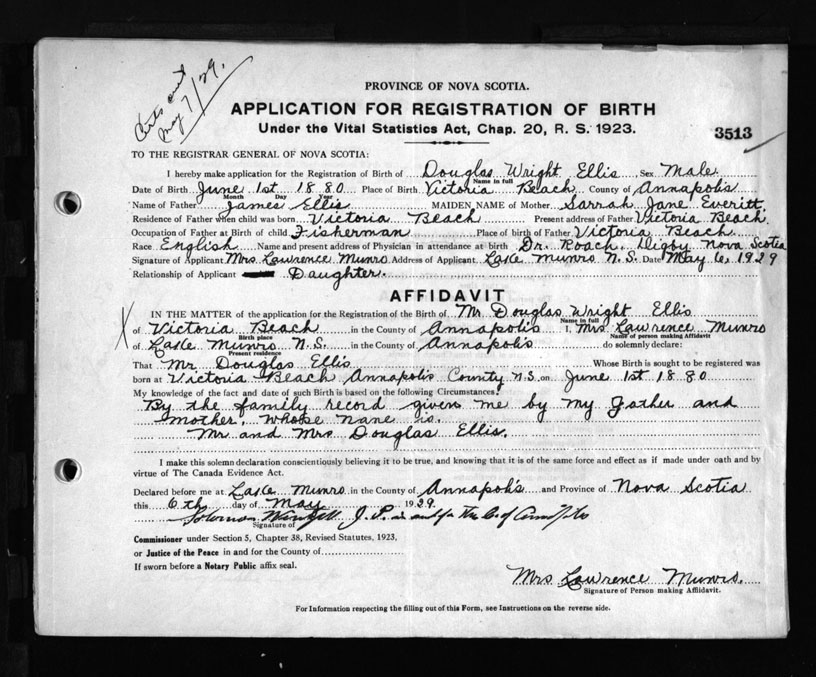 Certs out
May 7/29.
PROVINCE OF NOVA SCOTIA.
APPLICATION FOR REGISTRATION OF BIRTH
Under the Vital Statistics Act, Chap. 20, R. S. 1923.
3513
TO THE REGISTRAR GENERAL OF NOVA SCOTIA:
I hereby make application for the Registration of Birth of Douglas Wright Ellis Sex Male
Name in full
Date of Birth June 1st 1880 Place of Birth Victoria Beach County of Annapolis
Month Day Year
Name of Father James Ellis MAIDEN NAME of Mother Sarrah Jane Everitt
Residence of Father when child was born Victoria Beach Present address of Father Victoria Beach
Occupation of Father at Birth of child Fisherman Place of birth of Father Victoria Beach
Race English Name and present address of Physician in attendance at birth Dr. Roach Digby Nova Scotia
Signature of Applicant Mrs Lawrence Munro Address of Applicant Munro N.S. Date May 6, 1929
Relationship of Applicant Daughter.
AFFIDAVIT
IN THE MATTER of the application for the Registration of the Birth of Mr Douglas Wright Ellis
Name in full
X of Victoria Beach in the County of Annapolis I, Mrs Lawrence Munro
Birth place Name of person making Affidavit
of Munro N.S. in the County of Annapolis do solemnly declare:
Present residence
That Mr. Douglas Ellis Whose Birth is sought to be registered was
born at Victoria Beach Annapolis County N.S. on June 1st 1880
My knowledge of the fact and date of such Birth is based on the following Circumstances:
By the family record given me by my Father and
mother, whose name is.
Mr and Mrs Douglas Ellis.
I make this solemn declaration conscientiously believing it to be true, and knowing that it is of the same force and effect as if made under oath and by
virtue of The Canada Evidence Act.
Declared before me at Munro in the County of Annapolis and Province of Nova Scotia
this 6th day of May 1929
Solomon J. P. in and for the Co of Annapolis
Signature of
Commissioner under Section 5, Chapter 38, Revised Statutes, 1923,
or Justice of the Peace in and for the County of
If sworn before a Notary Public affix seal.
Mrs Lawrence Munro.
Signature of Person making Affidavit.
For Information respecting the filling out of this Form, see Instructions on the reverse side.